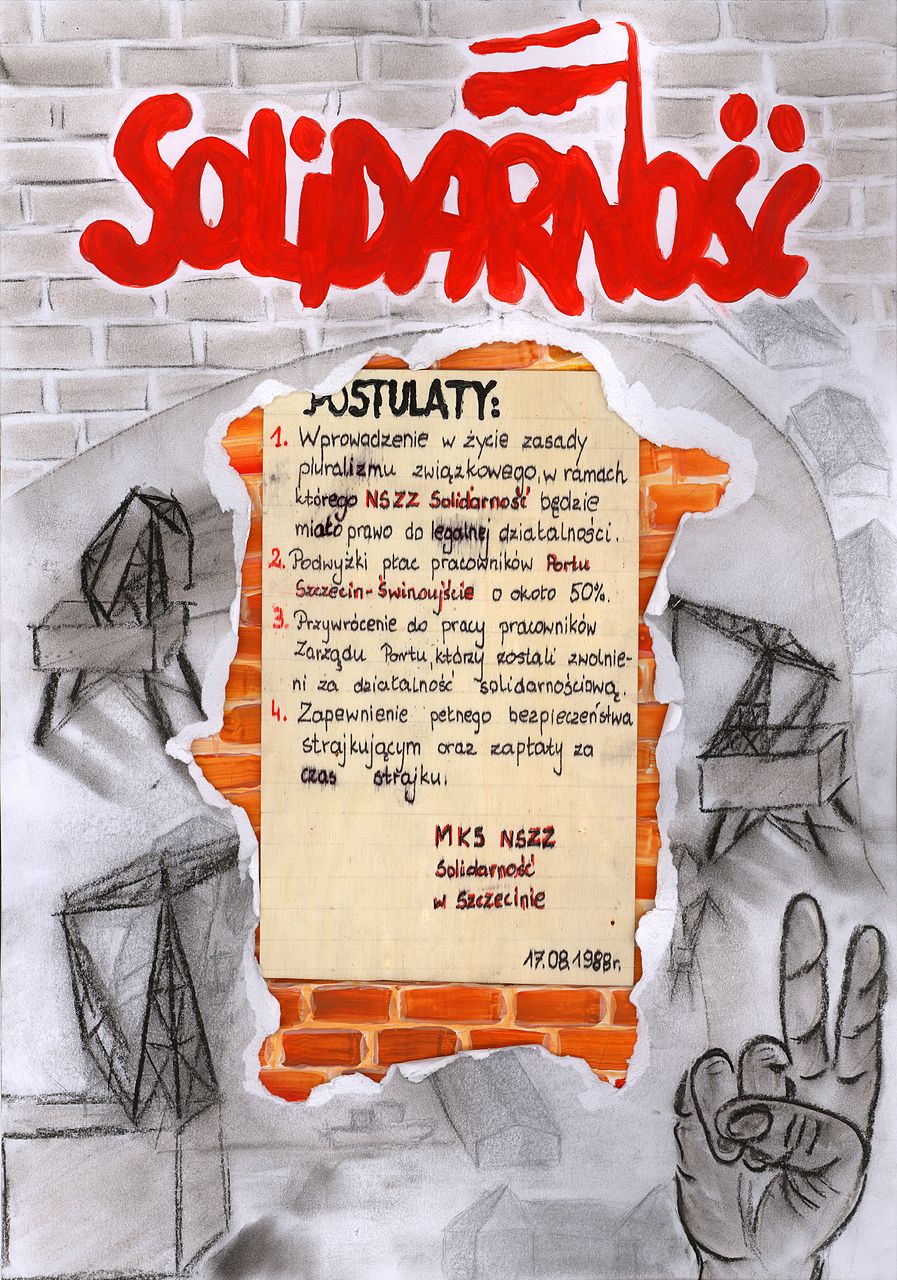 SOLiDARNOŚĆ
POSTULATY:
1. Wprowadzenie w życie zasady
pluralizmu związkowego, w ramach
którego NSZZ Solidarność będzie
miało prawo do legalnej działalności.
2. Podwyżki płac pracowników Portu
Szczecin-Świnoujście o około 50%.
3. Przywrócenie do pracy pracowników
Zarządu Portu, którzy zostali zwolnie-
ni za działalność solidarnościową.
4. Zapewnienie pełnego bezpieczeństwa
strajkującym oraz zapłaty za
czas strajku.
MKS NSZZ
Solidarność
w Szczecinie
17.08.1988r.